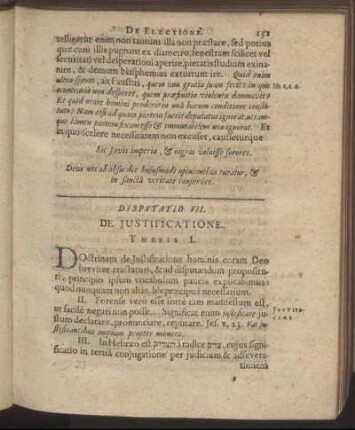 DE ELECTIONE. 151
telligetur enim non tantum illa non præstare, sed potius
quæ cum illis pugnant ex diametro, fenestram scilicet vel
securitati vel desperationi aperire, pietatis studium exina-
nire, & demum blasphemias extorquere. Quid enim
ultra speret, ait Faustus, quem jam gratia suam fecit: in quo
Et quid orare homini prodeverit und harum conditione consti-
tuto? Nam esse ad quam partem fuerit deputatus ignorat, utram-
que tamen partem fixam esse & immutabilem non ignorat. Et
in quo scelere necessitatem non excuset, causseturque
Sic Jovis imperia, & nigræ voluisse sorores.
Deus nos ab absurdis hujusmodi opinionibus tueatur, &
in sanctâ veritate conservet.
DISPUTATIO VII.
DE JUSTIFICATIONE.
THESIS I.
DOctrinam de Justificatione hominis coram Deo
breviter præstaturi, & ad disputandum proposituri,
principio ipsum vocabulum paucis explicabimus:
quod nunquam non aliàs, hîc præcipuè necessarium.
II. Forense verò esse istud tam manifestum est,
ut facilè negari non possit. Significat enim justificare ju-
stum declarare, pronunciare, reputare. Jes. 5, 23. Væ ju-
stificantibus impium propter munera.
III. In Hebræo est הצדיק à radice צדק, cujus signi-
ficatio in tertiâ conjugatione per judicium & assevera-
tionem